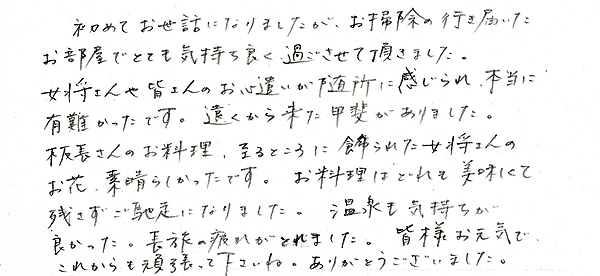 初めてお世話になりましたが、お掃除の行き届いた
お部屋でとても気持ち良く過ごさせて頂きました。
女将さんや皆さんのお心遣いが随所に感じられ、本当に
有難かったです。遠くから来た甲斐がありました。
板長さんのお料理、至るところに飾られた女将さんの
お花、素晴らしかったです。お料理はどれも美味くて
残さずご馳走になりました。温泉も気持ちが
良かった。長旅の疲れがとれました。皆様お元気で、
これからも頑張って下さいね。ありがとうございました。